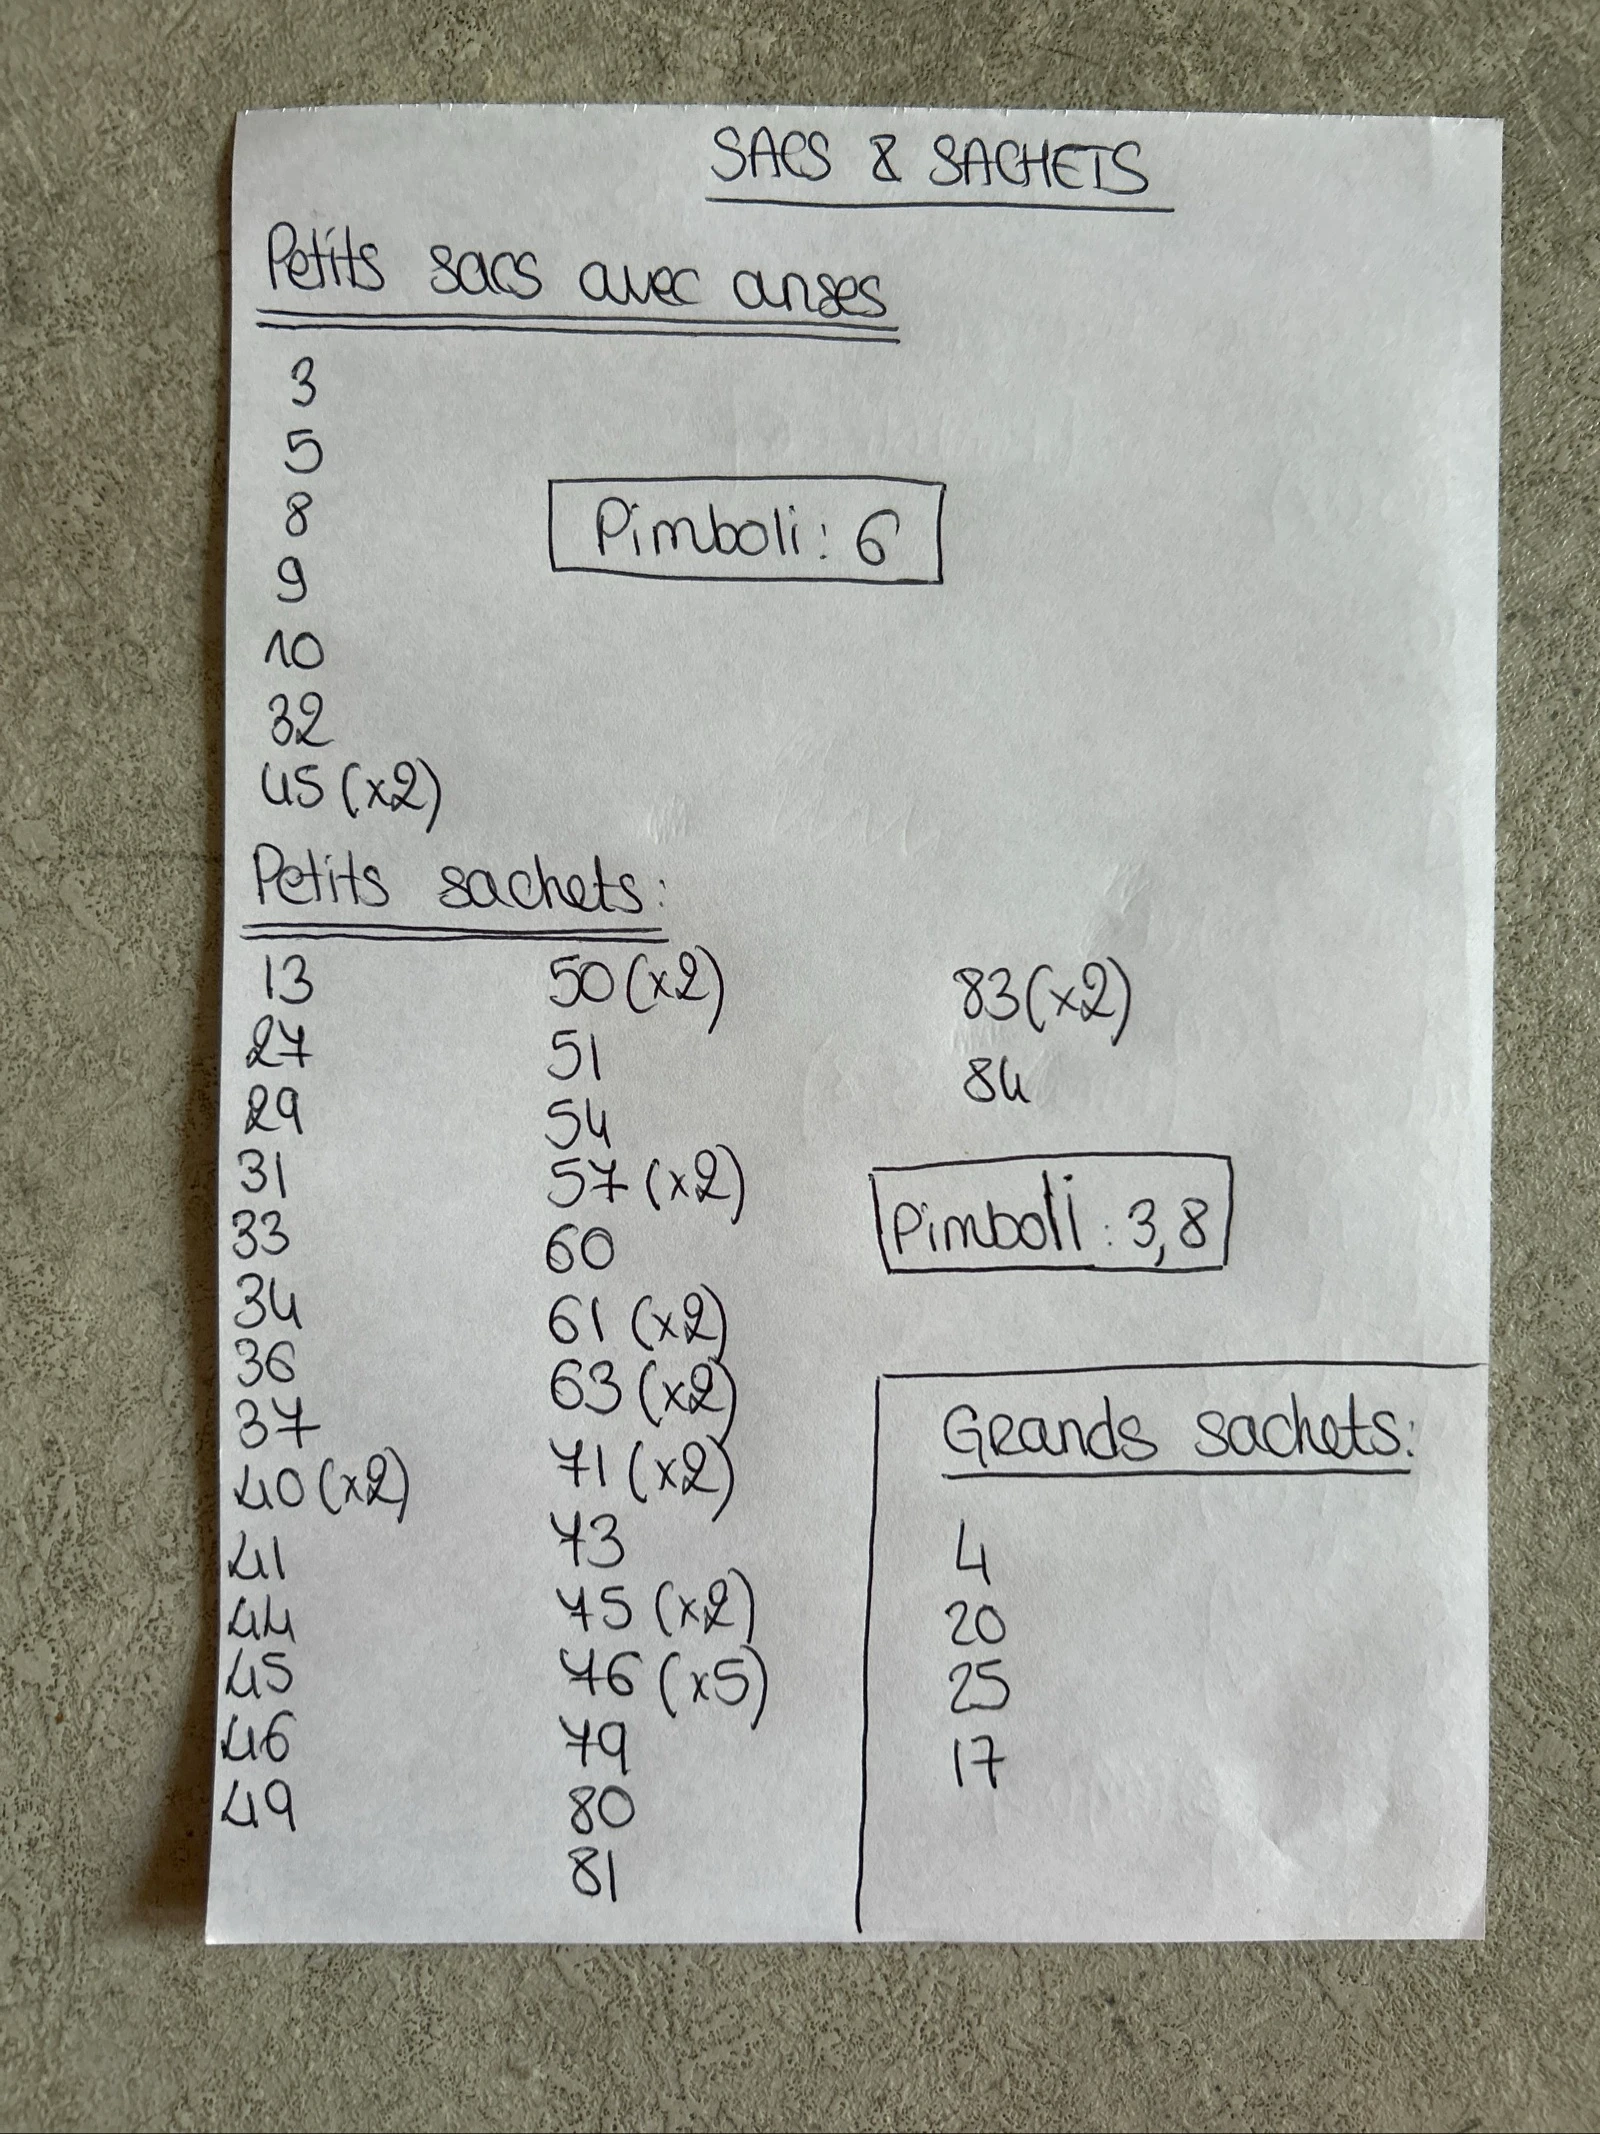 SACS & SACHETS
Petits sacs avec anses
3
5
8
9
10
32
45 (x2)
Pimboli : 6
Petits sachets :
13
27
29
31
33
34
36
37
40 (x2)
41
44
45
46
49
50 (x2)
51
54
57 (x2)
60
61 (x2)
63 (x2)
71 (x2)
73
75 (x2)
76 (x5)
79
80
81
83 (x2)
84
Pimboli : 3,8
Grands sachets :
4
20
25
17